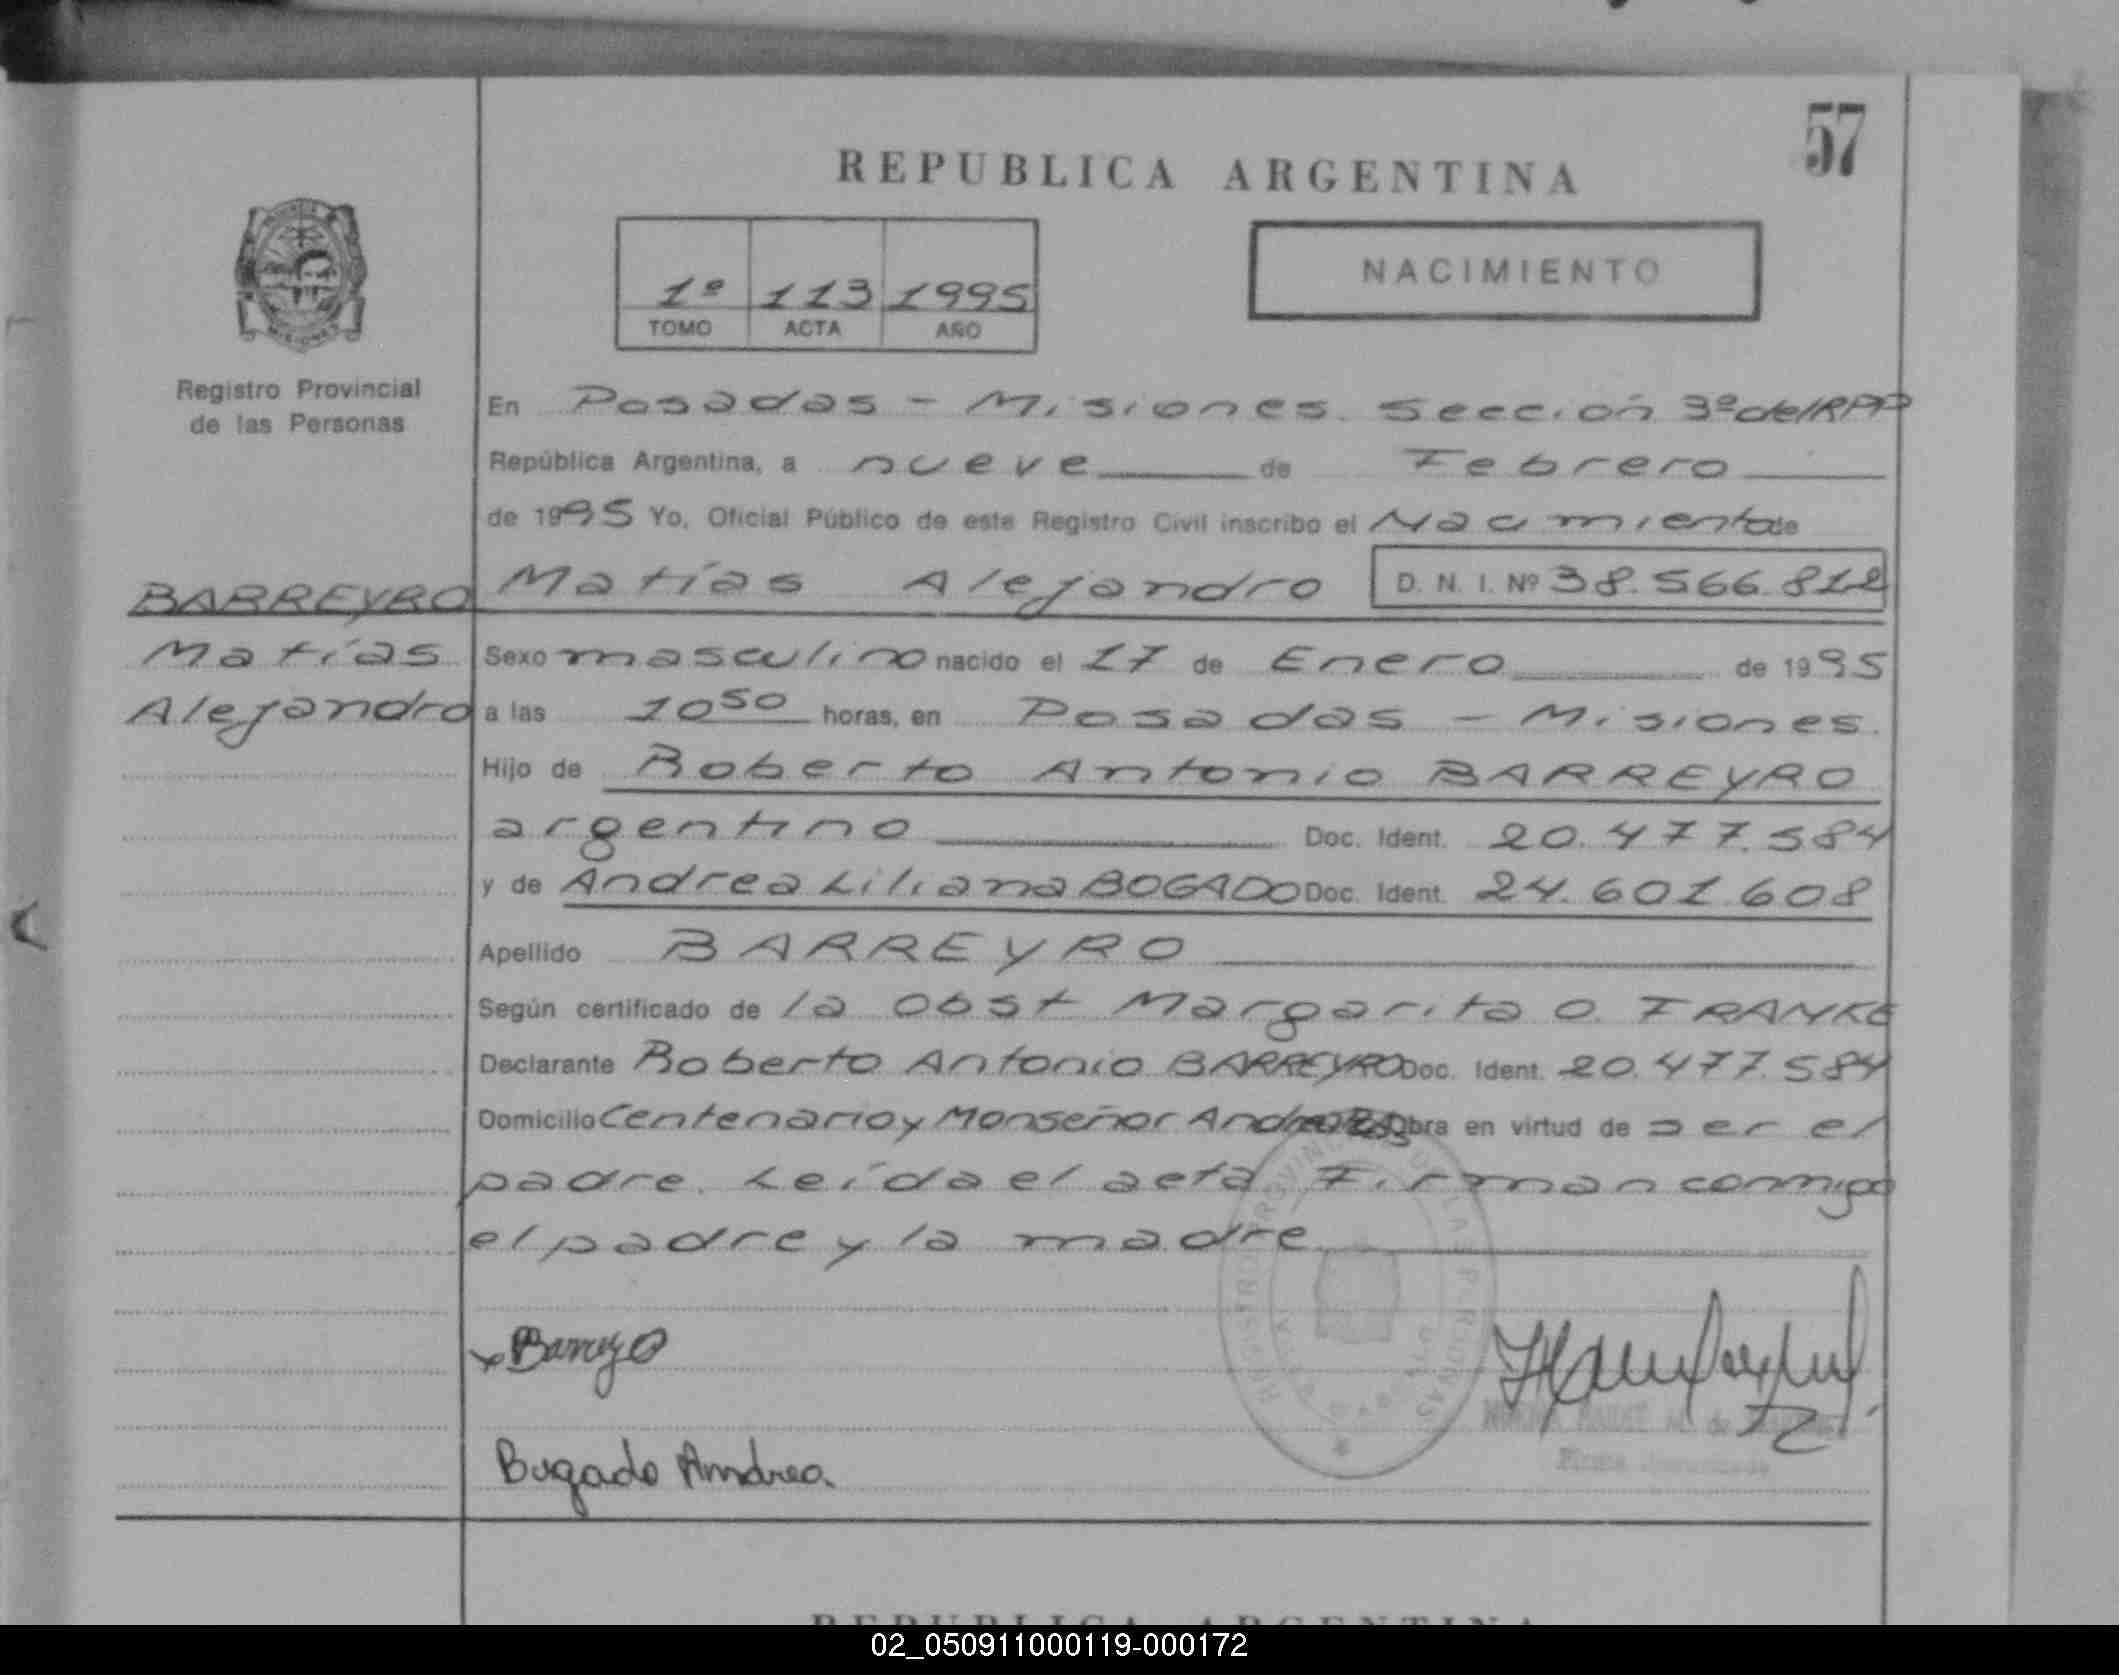 57
REPUBLICA ARGENTINA
1º 113 1995
TOMO ACTA AÑO
NACIMIENTO
Registro Provincial
de las Personas
En Posadas - Misiones. Sección 3º del RPP
República Argentina, a nueve de Febrero
de 1995 Yo, Oficial Público de este Registro Civil inscribo el Nacimiento de
BARREYRO Matías Alejandro D. N. I. Nº 38.566.812
Matías Sexo masculino nacido el 17 de Enero de 1995
Alejandro a las 10 50 horas, en Posadas - Misiones.
Hijo de Roberto Antonio BARREYRO
argentino Doc. Ident. 20.477.584
y de Andrea Liliana BOGADO Doc. Ident. 24.601.608
Apellido BARREYRO
Según certificado de la Obst Margarita O. FRANKE
Declarante Roberto Antonio BARREYRO Doc. Ident. 20.477.584
Domicilio Centenario y Monseñor Obra en virtud de ser el
padre. Leída el acta Firman conmigo
el padre y la madre
REGISTRO PROVINCIAL DE LAS PERSONAS
Bogado Andrea.
REPUBLICA ARGENTINA
02_050911000119-000172